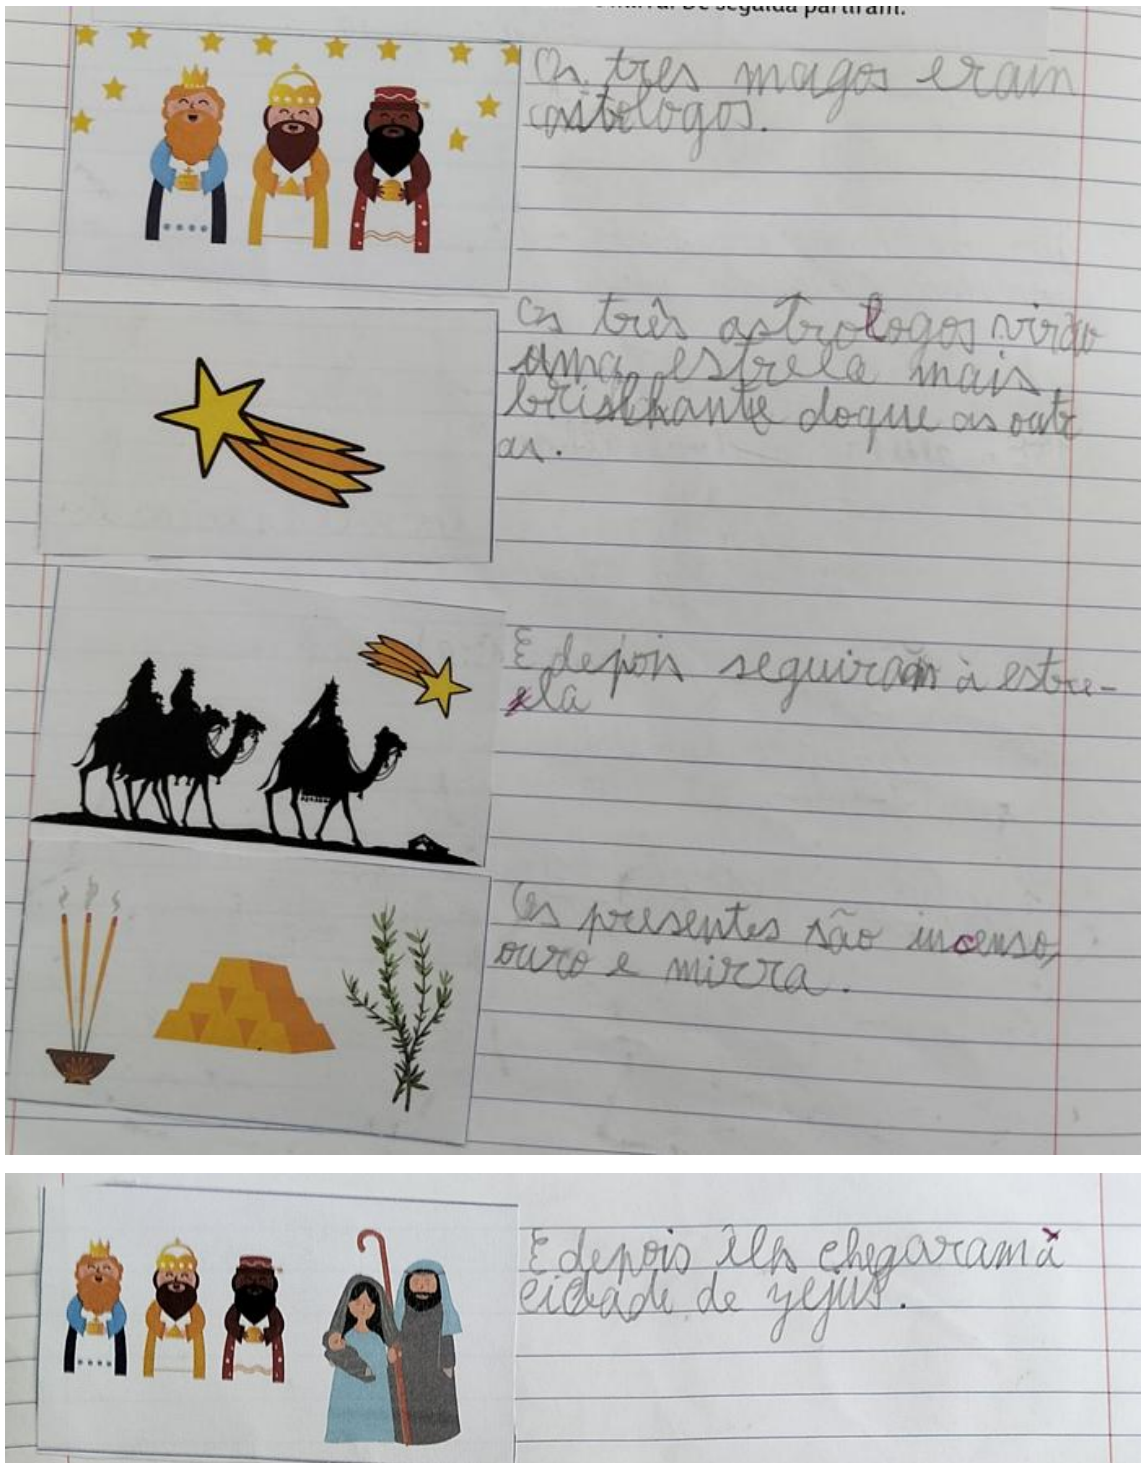 mirra. De seguida partiram.
Os tres magos eram
astrologos.
Os três astrologos virão
uma estrela mais
brilhante doque as outr
as.
E depois seguiram à estre-
la
Os presentes são incenso,
ouro e mirra.
E depois êles chegaram à
cidade de yejus.